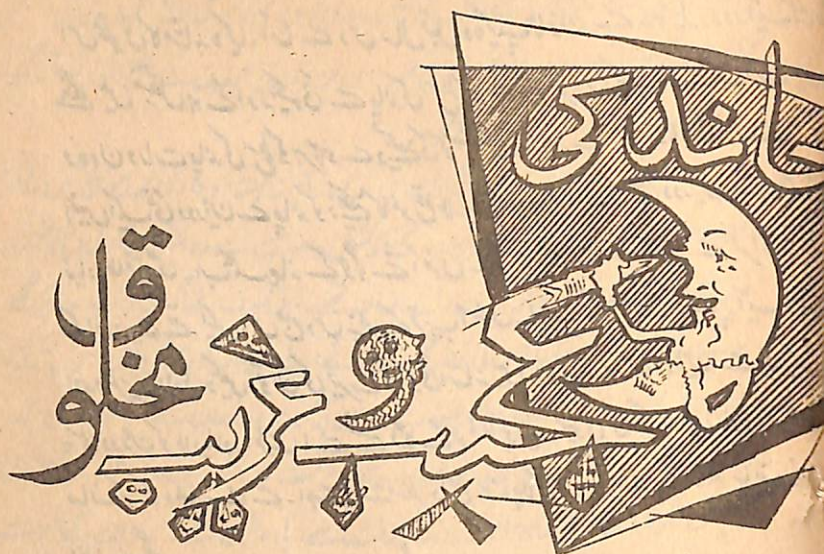 چاند کی
عجیب و غریب
مخلوق